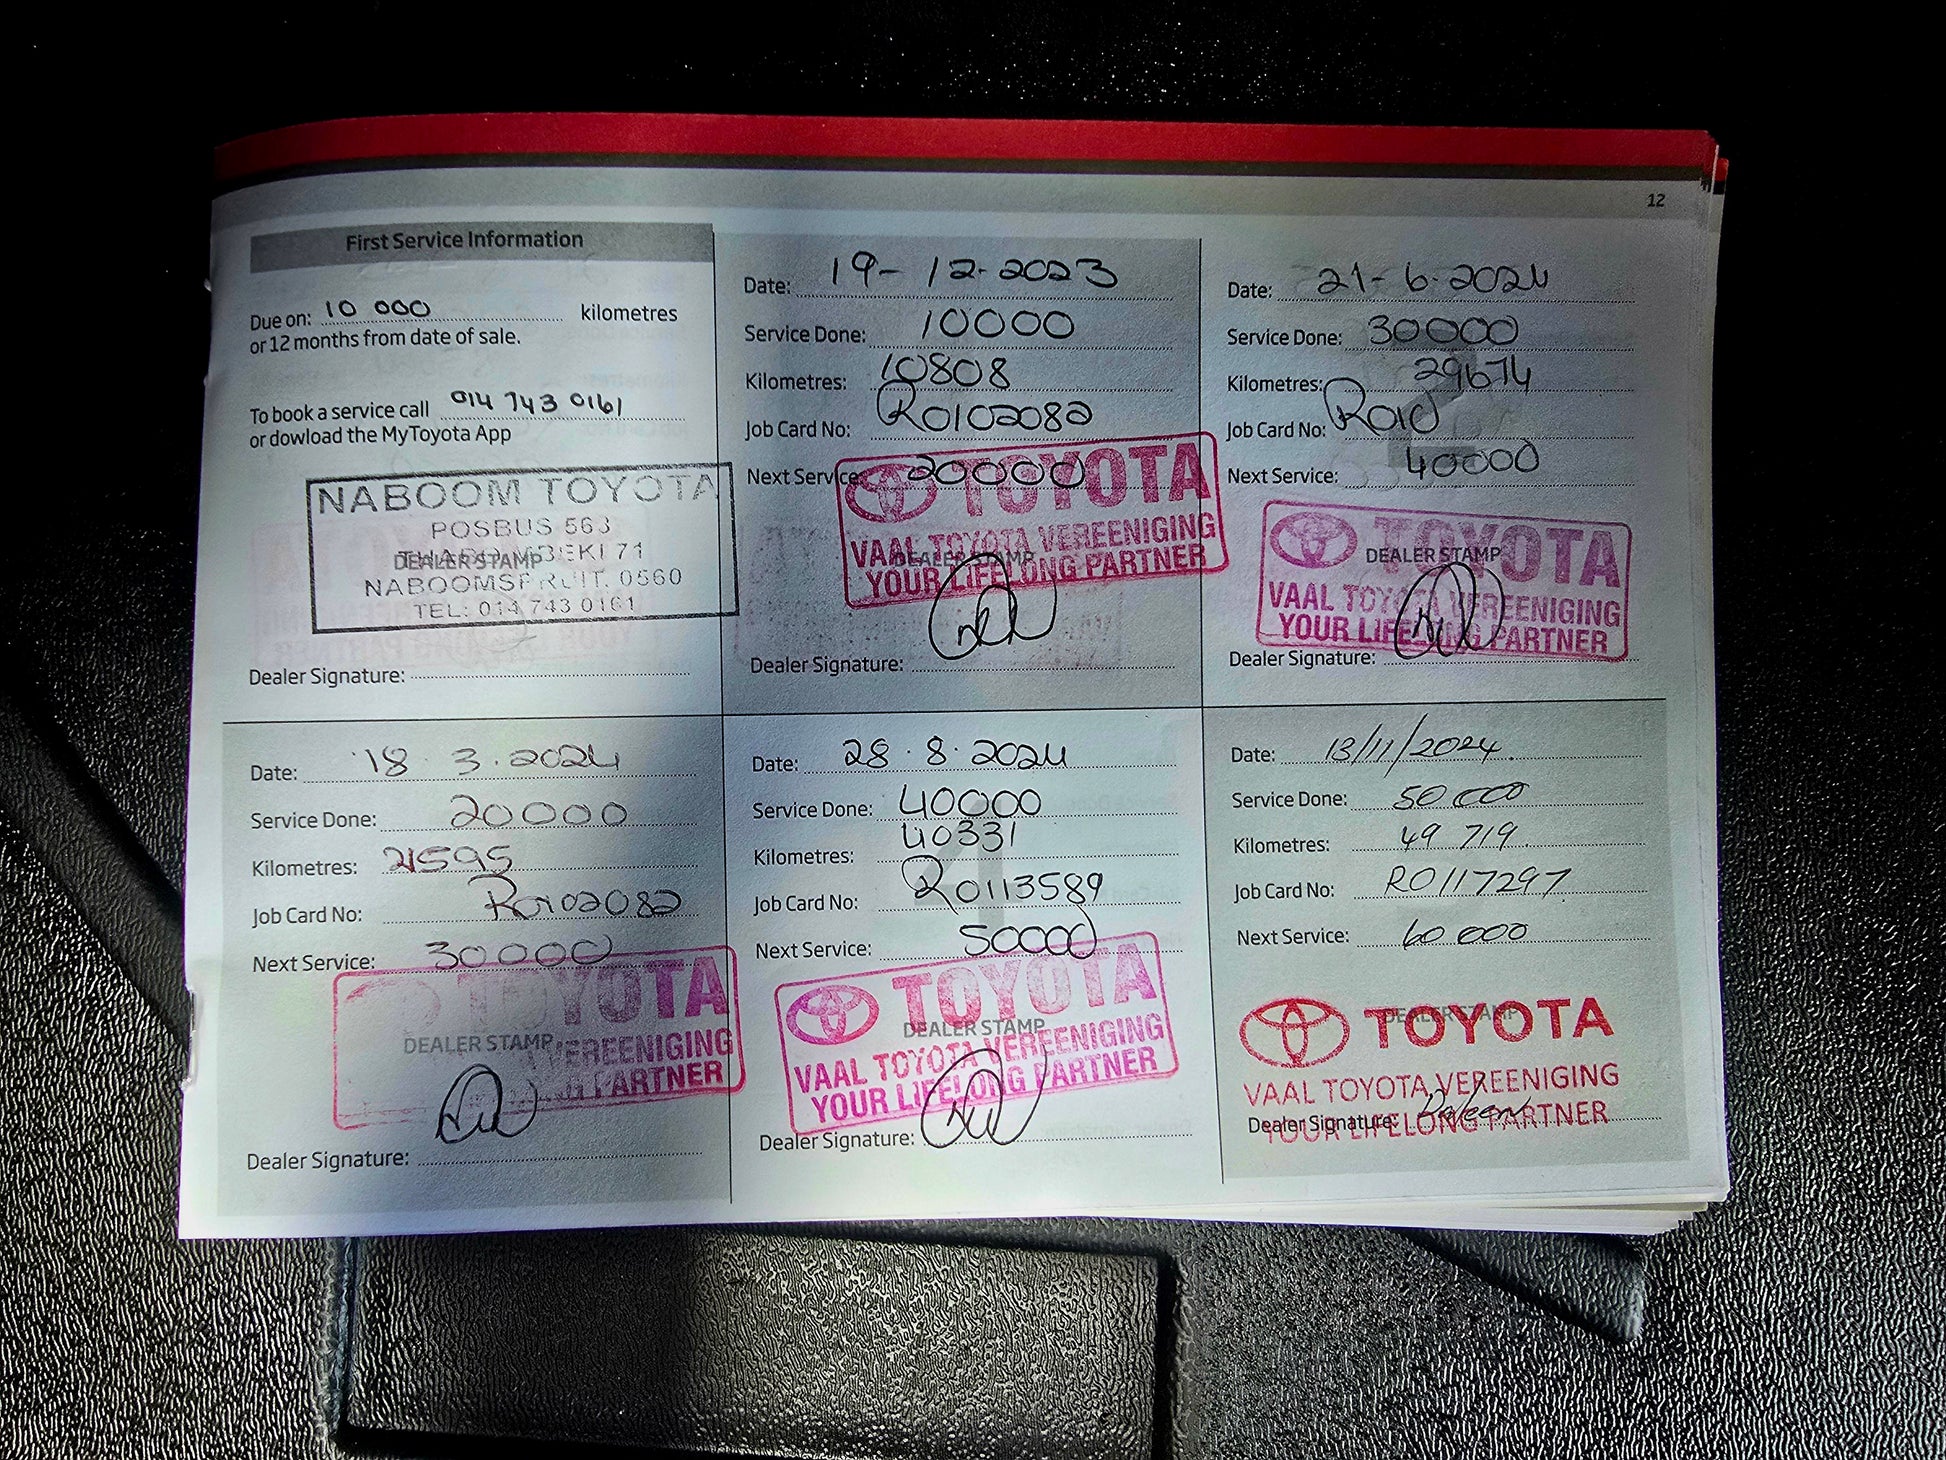 12
First Service Information
Due on: 10 000 kilometres
or 12 months from date of sale.
To book a service call 014 743 0161
or dowload the MyToyota App
NABOOM TOYOTA
POSBUS 563
THABO MBEKI 71
DEALER STAMP
NABOOMSPRUIT. 0560
TEL: 014 743 0161
Dealer Signature:
Date: 19-12-2023
Service Done: 10000
Kilometres: 10808
Job Card No: R0102082
Next Service: 20000
TOYOTA
VAAL TOYOTA VEREENIGING
DEALER STAMP
YOUR LIFELONG PARTNER
Dealer Signature:
Date: 21-6-2024
Service Done: 30000
Kilometres: 29674
Job Card No: R010
Next Service: 40000
TOYOTA
DEALER STAMP
VAAL TOYOTA VEREENIGING
YOUR LIFELONG PARTNER
Dealer Signature:
Date: 18.3.2024
Service Done: 20000
Kilometres: 21595
Job Card No: R0102082
Next Service: 30000
TOYOTA
DEALER STAMP
VEREENIGING
PARTNER
Dealer Signature:
Date: 28.8.2024
Service Done: 40000
Kilometres: 40331
Job Card No: R0113589
Next Service: 50000
TOYOTA
DEALER STAMP
VAAL TOYOTA VEREENIGING
YOUR LIFELONG PARTNER
Dealer Signature:
Date: 13/11/2024.
Service Done: 50 000
Kilometres: 49 719.
Job Card No: R0117297
Next Service: 60 000
TOYOTA
DEALER STAMP
VAAL TOYOTA VEREENIGING
Dealer Signature:
YOUR LIFELONG PARTNER